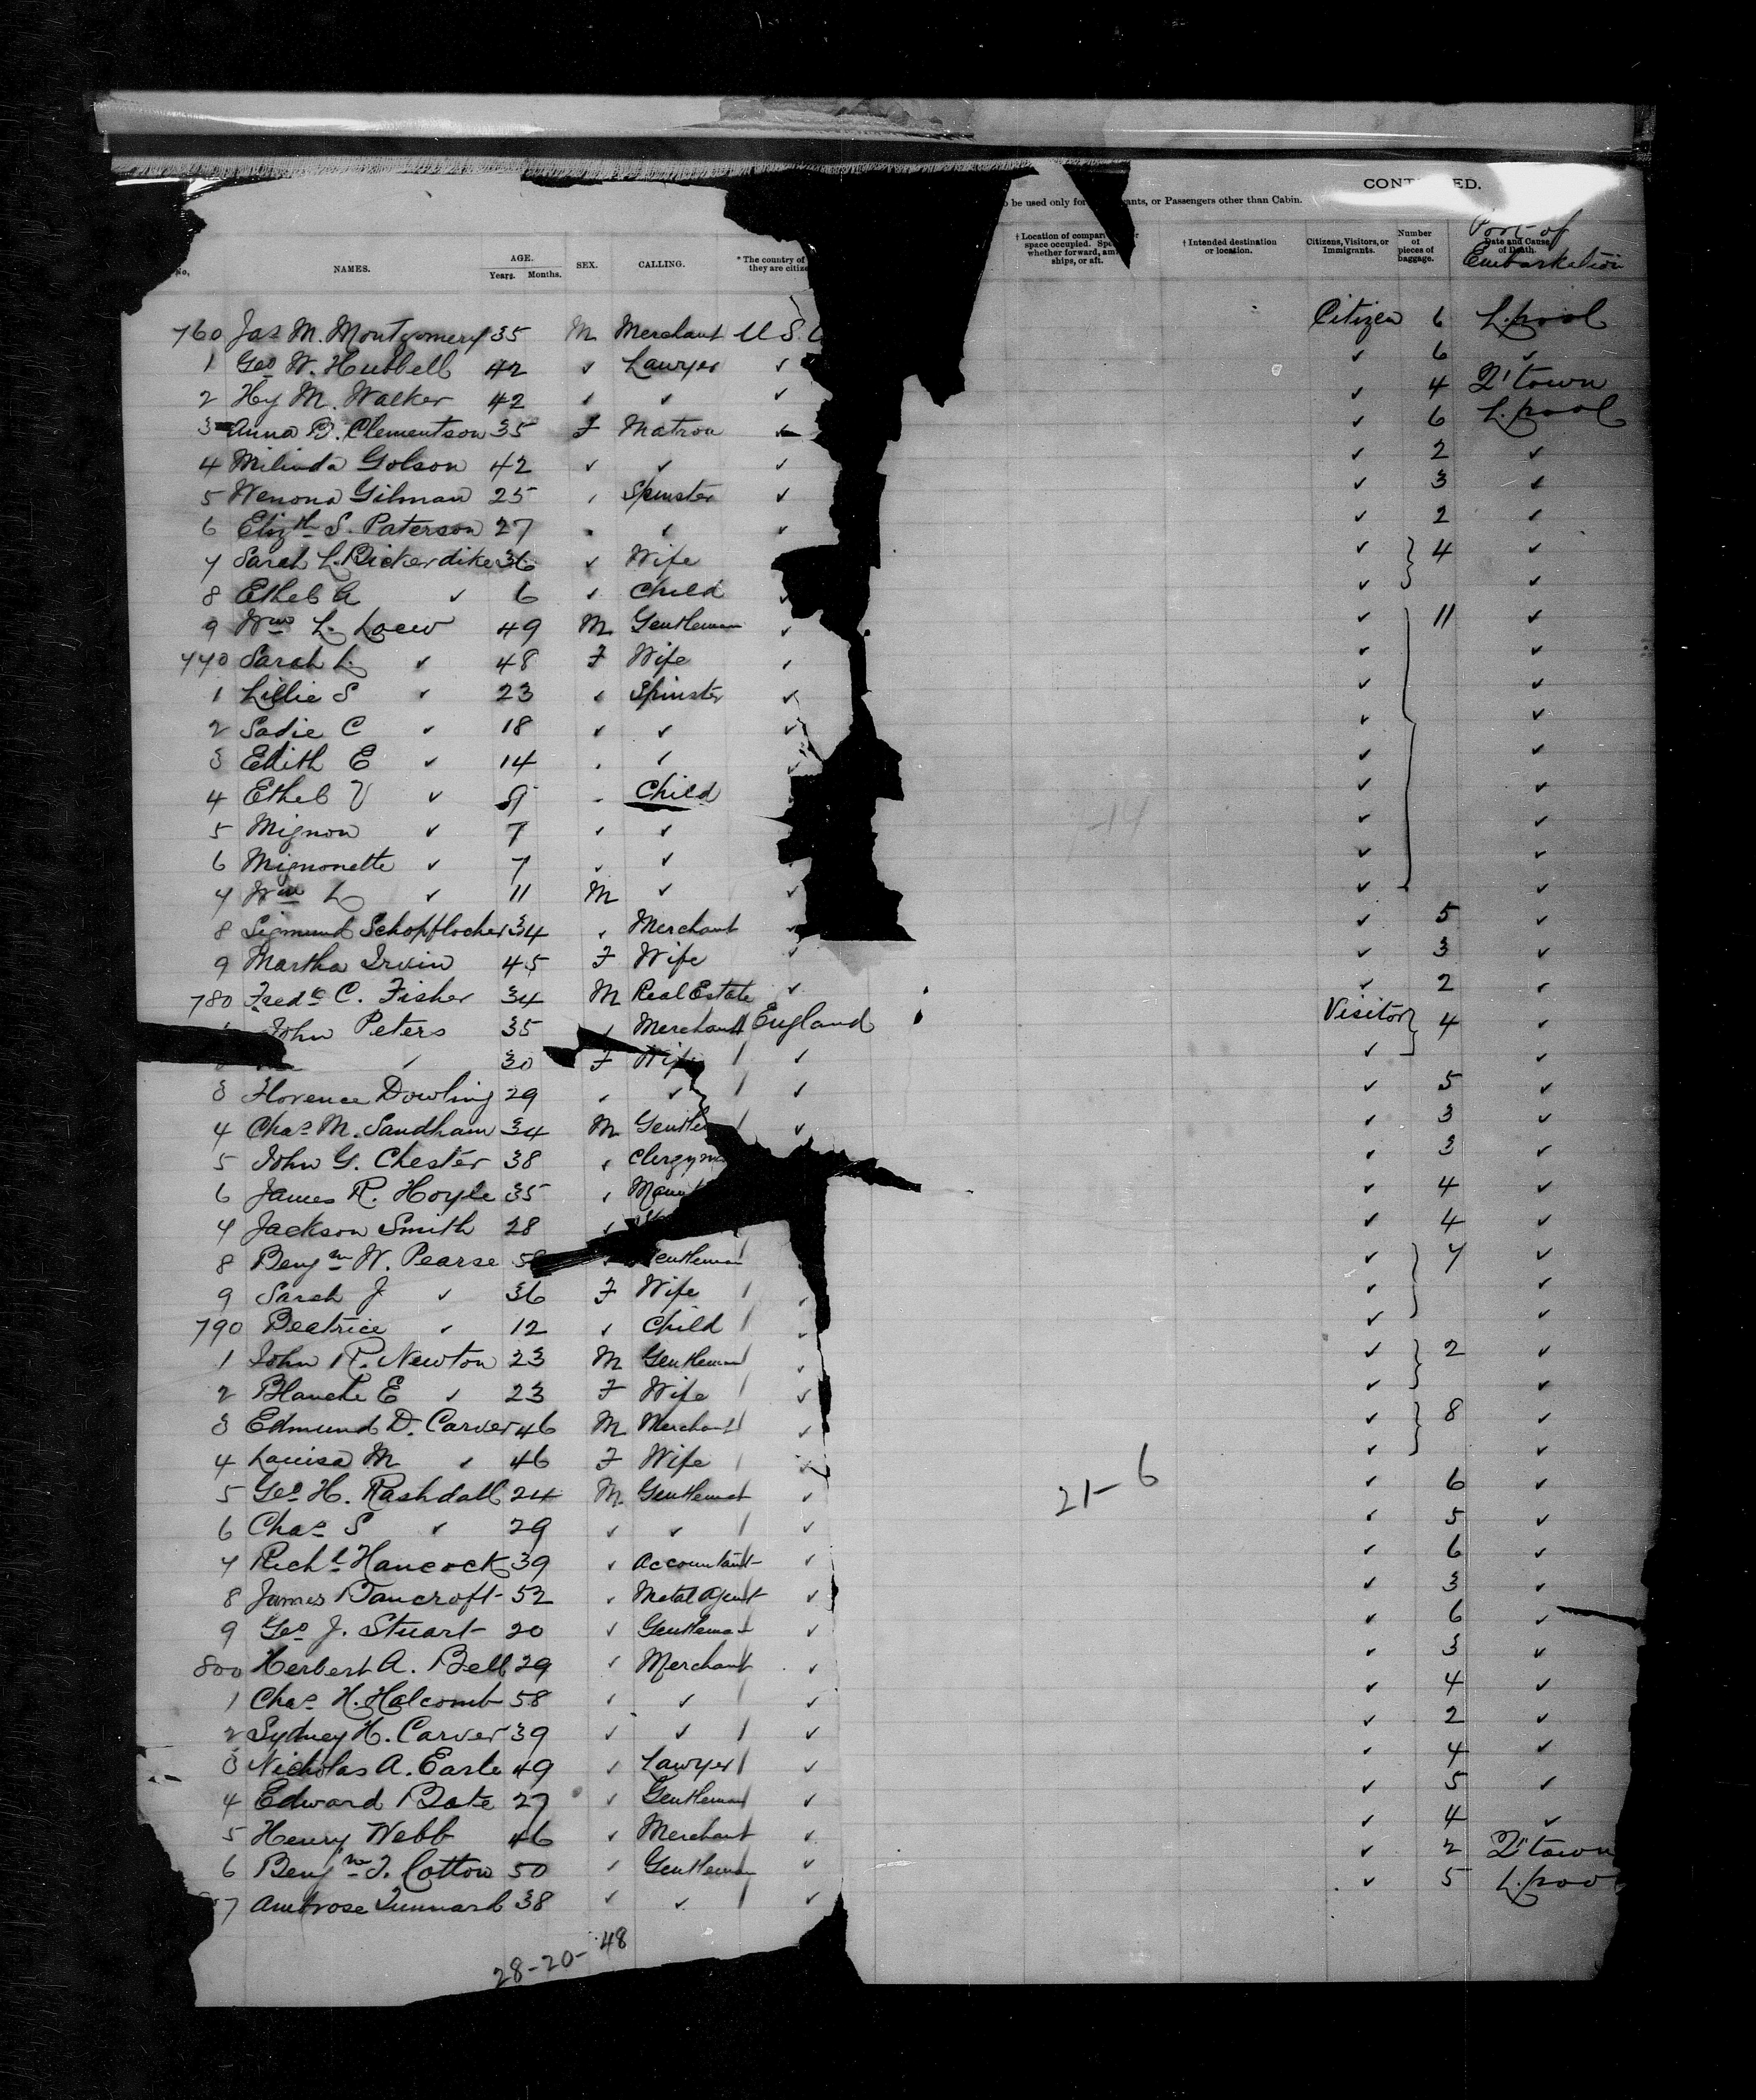 CONT ED.
o be used only for ants, or Passengers other than Cabin.
No. NAMES. AGE. Years. Months. SEX. CALLING. * The country of they are citize † Location of compar r space occupied. Spe whether forward, am ships, or aft. † Intended destination or location. Citizens, Visitors, or Immigrants. Number of pieces of baggage. Date and Cause of Death. Port of Embarkation
760 Jas M. Montgomery 35 M Merchant U S. Citizen 6 L.pool
1 Geo W. Hubbell 42 ✓ Lawyer ✓ ✓ 6 ✓
2 Hy M. Walker 42 ✓ ✓ ✓ ✓ 4 Q'town
3 Anna B. Clementson 35 F Matron ✓ ✓ 6 L.pool
4 Milinda Golson 42 ✓ ✓ ✓ ✓ 2 ✓
5 Wenona Gilman 25 ✓ Spinster ✓ ✓ 3 ✓
6 Elizth S. Paterson 27 ✓ ✓ ✓ ✓ 2 ✓
7 Sarah L. Bickerdike 36 ✓ Wife ✓ } 4 ✓
8 Ethel A ✓ 6 ✓ Child ✓ ✓ ✓
9 Wm L. Loew 49 M Gentleman ✓ ✓ 11 ✓
770 Sarah L. ✓ 48 F Wife ✓ ✓ ✓
1 Lillie S ✓ 23 ✓ Spinster ✓ ✓ ✓
2 Sadie C ✓ 18 ✓ ✓ ✓ ✓ ✓
3 Edith E ✓ 14 ✓ ✓ ✓ ✓ ✓
4 Ethel V ✓ 9 ✓ Child ✓ ✓
5 Mignon ✓ 7 ✓ ✓ ✓ ✓
6 Mignonette ✓ 7 ✓ ✓ ✓ ✓
7 Wm L ✓ 11 M ✓ ✓ ✓ ✓
8 Sigmund Schopflocher 34 ✓ Merchant ✓ ✓ 5 ✓
9 Martha Irvin 45 F Wife ✓ ✓ 3 ✓
780 Fredk C. Fisher 34 M Real Estate ✓ ✓ 2 ✓
John Peters 35 ✓ Merchant England Visitor } 4 ✓
✓ 30 F Wife ✓ ✓ ✓
3 Florence Dowling 29 ✓ ✓ ✓ ✓ 5 ✓
4 Chas M. Sandham 34 M Gentle ✓ ✓ 3 ✓
5 John G. Chester 38 ✓ Clergyma ✓ 3 ✓
6 James R. Hoyle 35 ✓ Manu ✓ 4 ✓
7 Jackson Smith 28 ✓ ✓ 4 ✓
8 Benjn W. Pearse 5 ✓ Gentleman ✓ } 7 ✓
9 Sarah J ✓ 36 F Wife ✓ ✓ ✓
790 Beatrice ✓ 12 ✓ Child ✓ ✓ ✓
1 John R. Newton 23 M Gentleman ✓ ✓ } 2 ✓
2 Blanche E ✓ 23 F Wife ✓ ✓ ✓
3 Edmund D. Carver 46 M Merchant ✓ ✓ } 8 ✓
4 Louisa M ✓ 46 F Wife ✓ ✓ ✓
5 Geo H. Rashdall 24 M Gentleman ✓ 21-6 ✓ 6 ✓
6 Chas S ✓ 29 ✓ ✓ ✓ ✓ 5 ✓
7 Richd Hancock 39 ✓ Accountant ✓ ✓ 6 ✓
8 James Bancroft 52 ✓ Metal Agent ✓ ✓ 3 ✓
9 Geo J. Stuart 20 ✓ Gentleman ✓ ✓ 6 ✓
800 Herbert A. Bell 29 ✓ Merchant ✓ ✓ 3 ✓
1 Chas H. Halcomb 58 ✓ ✓ ✓ ✓ 4 ✓
2 Sydney H. Carver 39 ✓ ✓ ✓ ✓ 2 ✓
3 Nicholas A. Earle 49 ✓ Lawyer ✓ ✓ 4 ✓
4 Edward Bate 27 ✓ Gentleman ✓ ✓ 5 ✓
5 Henry Webb 46 ✓ Merchant ✓ ✓ 4 ✓
6 Benjn T. Cotton 50 ✓ Gentleman ✓ ✓ 2 Q'town
7 Ambrose Tunnard 38 ✓ ✓ ✓ ✓ 5 L.poo
28-20-48